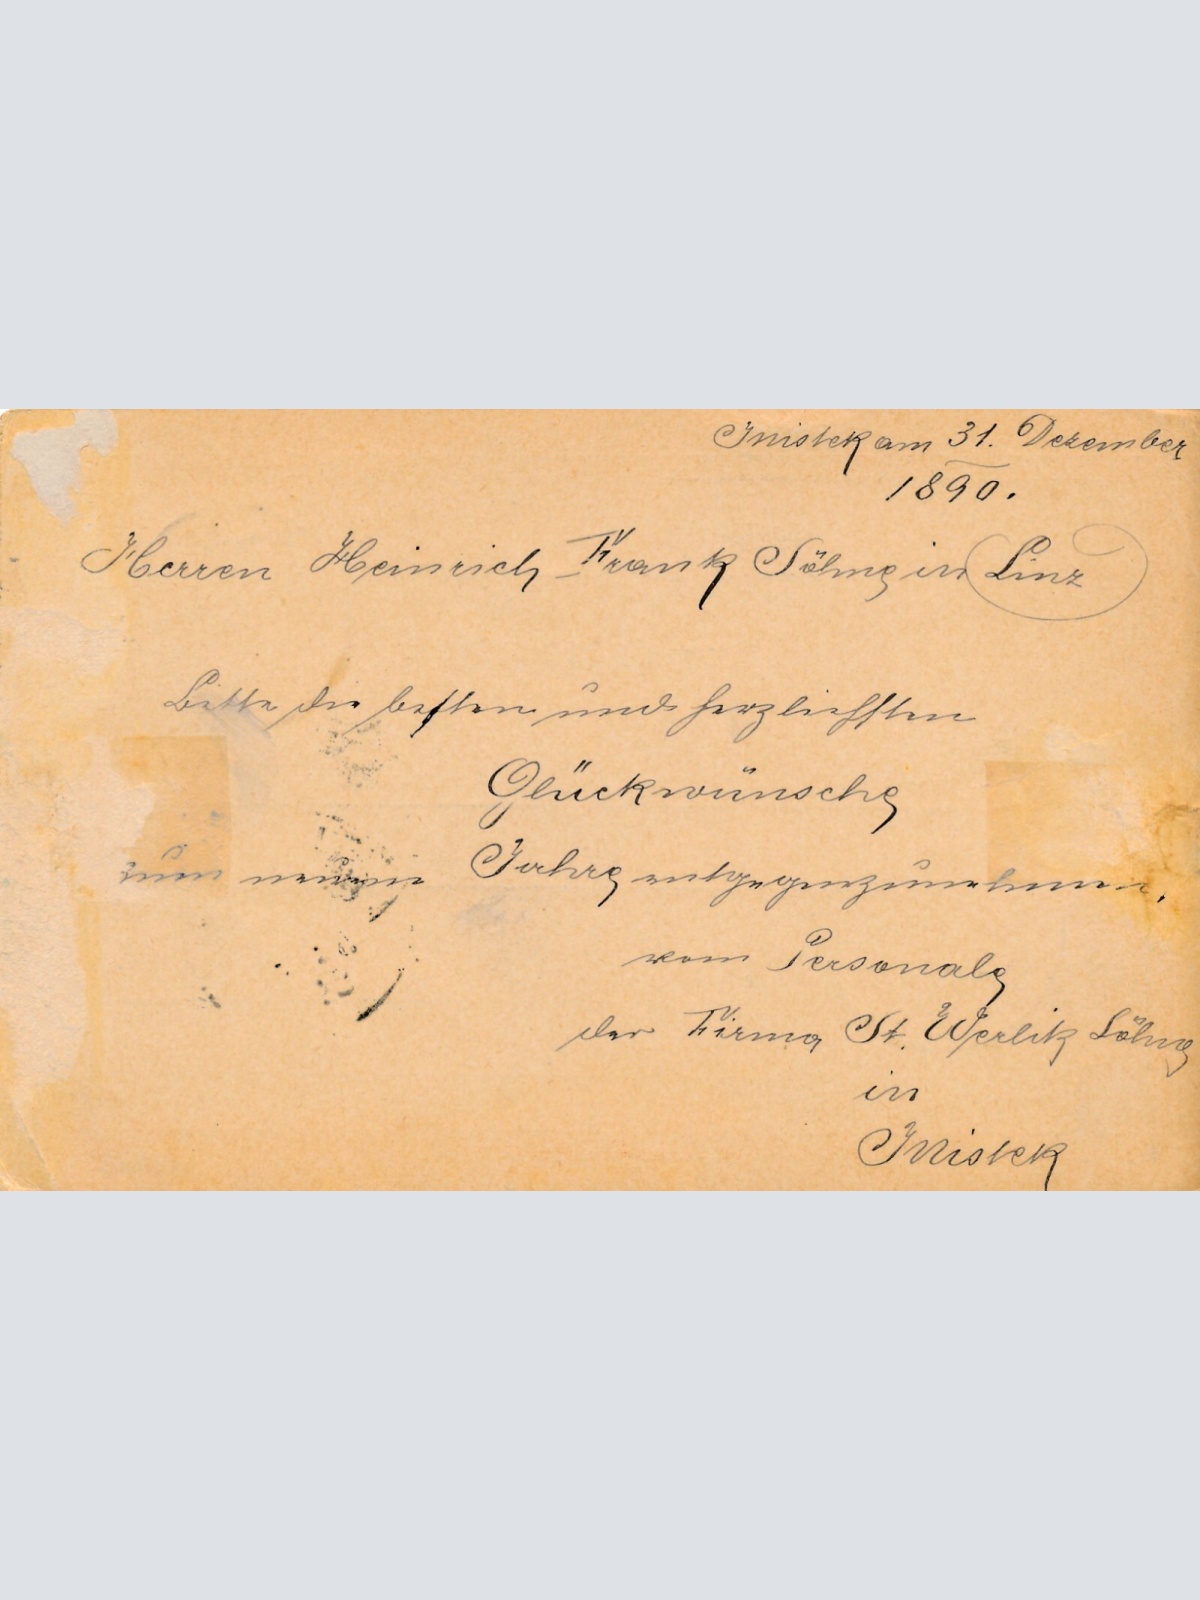 Mistek am 31. Dezember
1890.
Herren Heinrich Frank Söhne in Linz
Bitte die besten und herzlichsten
Glückwünsche
zum neuen Jahre entgegenzunehmen,
vom Personale
der Firma St. Werlik Söhne
in
Mistek